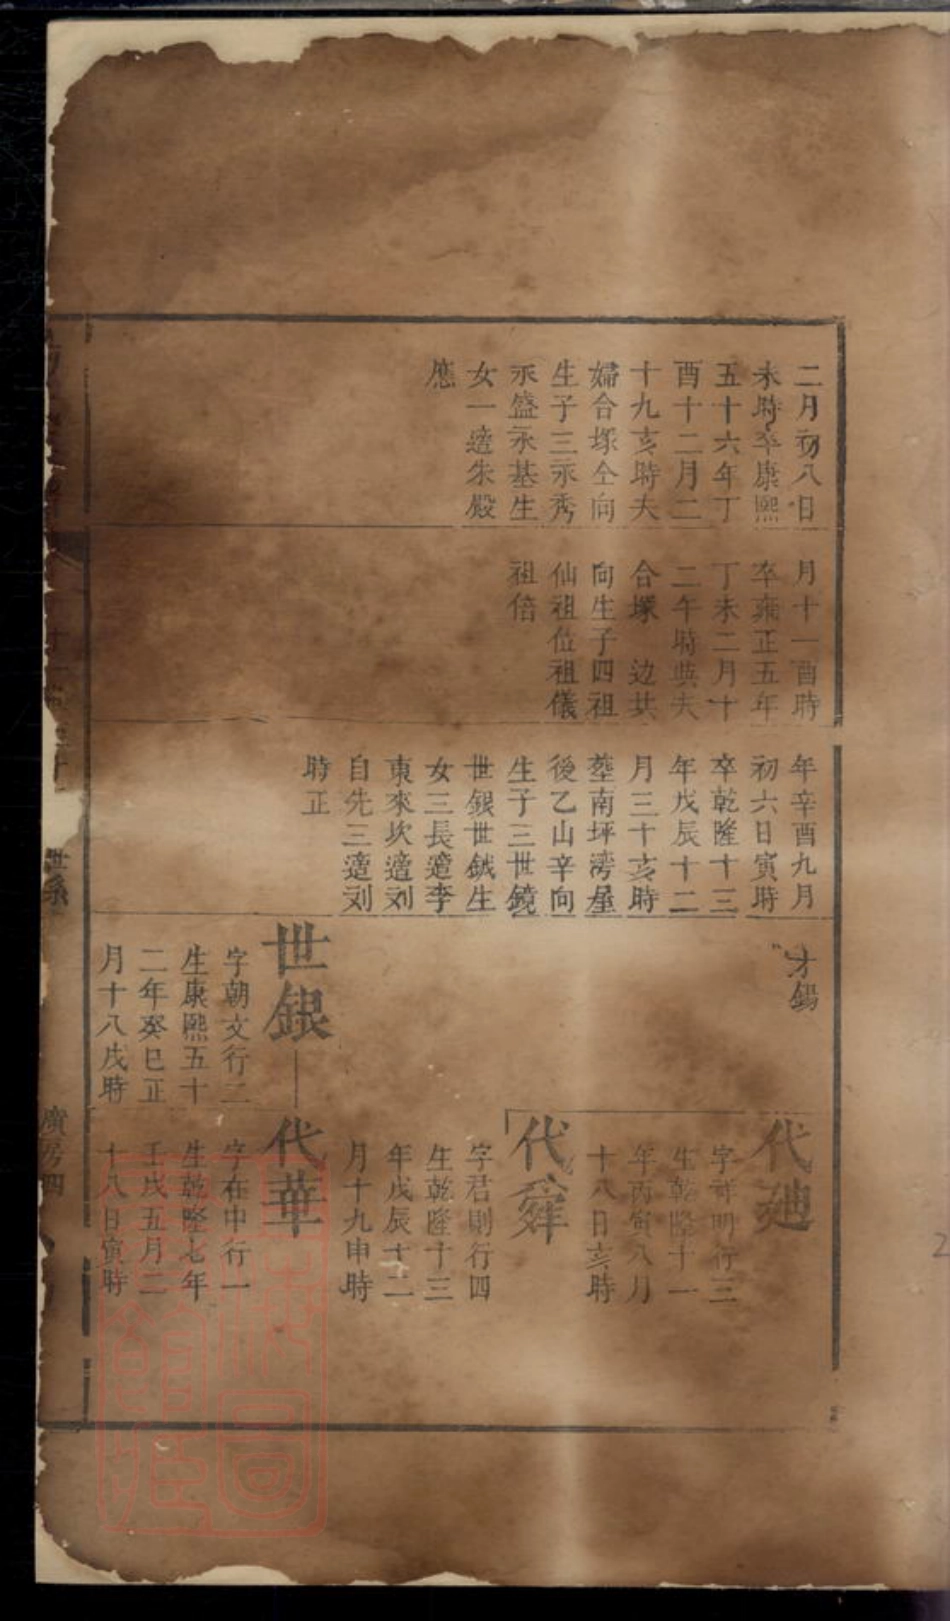 二月初八日
未時卒康熙
五十六年丁
酉十二月二
十九亥時夫
婦合塚仝向
生子三永秀
永盛永基生
女一適朱殿
應
月十一酉時
卒雍正五年
丁未二月十
二午時與夫
合塚 边共
向生子四祖
仙祖位祖儀
祖倍
年辛酉九月
初六日寅時
卒乾隆十三
年戊辰十二
月三十亥時
塟南坪湾屋
後乙山辛向
生子三世鏡
世銀世鉞生
女三長適李
東來次適刘
自先三適刘
時正
才錫
世銀
字朝文行二
生康熙五十
二年癸巳正
月十八戌時
代廸
字 明行三
生乾隆十一
年丙寅八月
十八日亥時
代
字君則行四
生乾隆十三
年戊辰十二
月十九申時
代華
字在中行一
生乾隆七年
壬戌五月二
十八日寅時
世系
廣房四